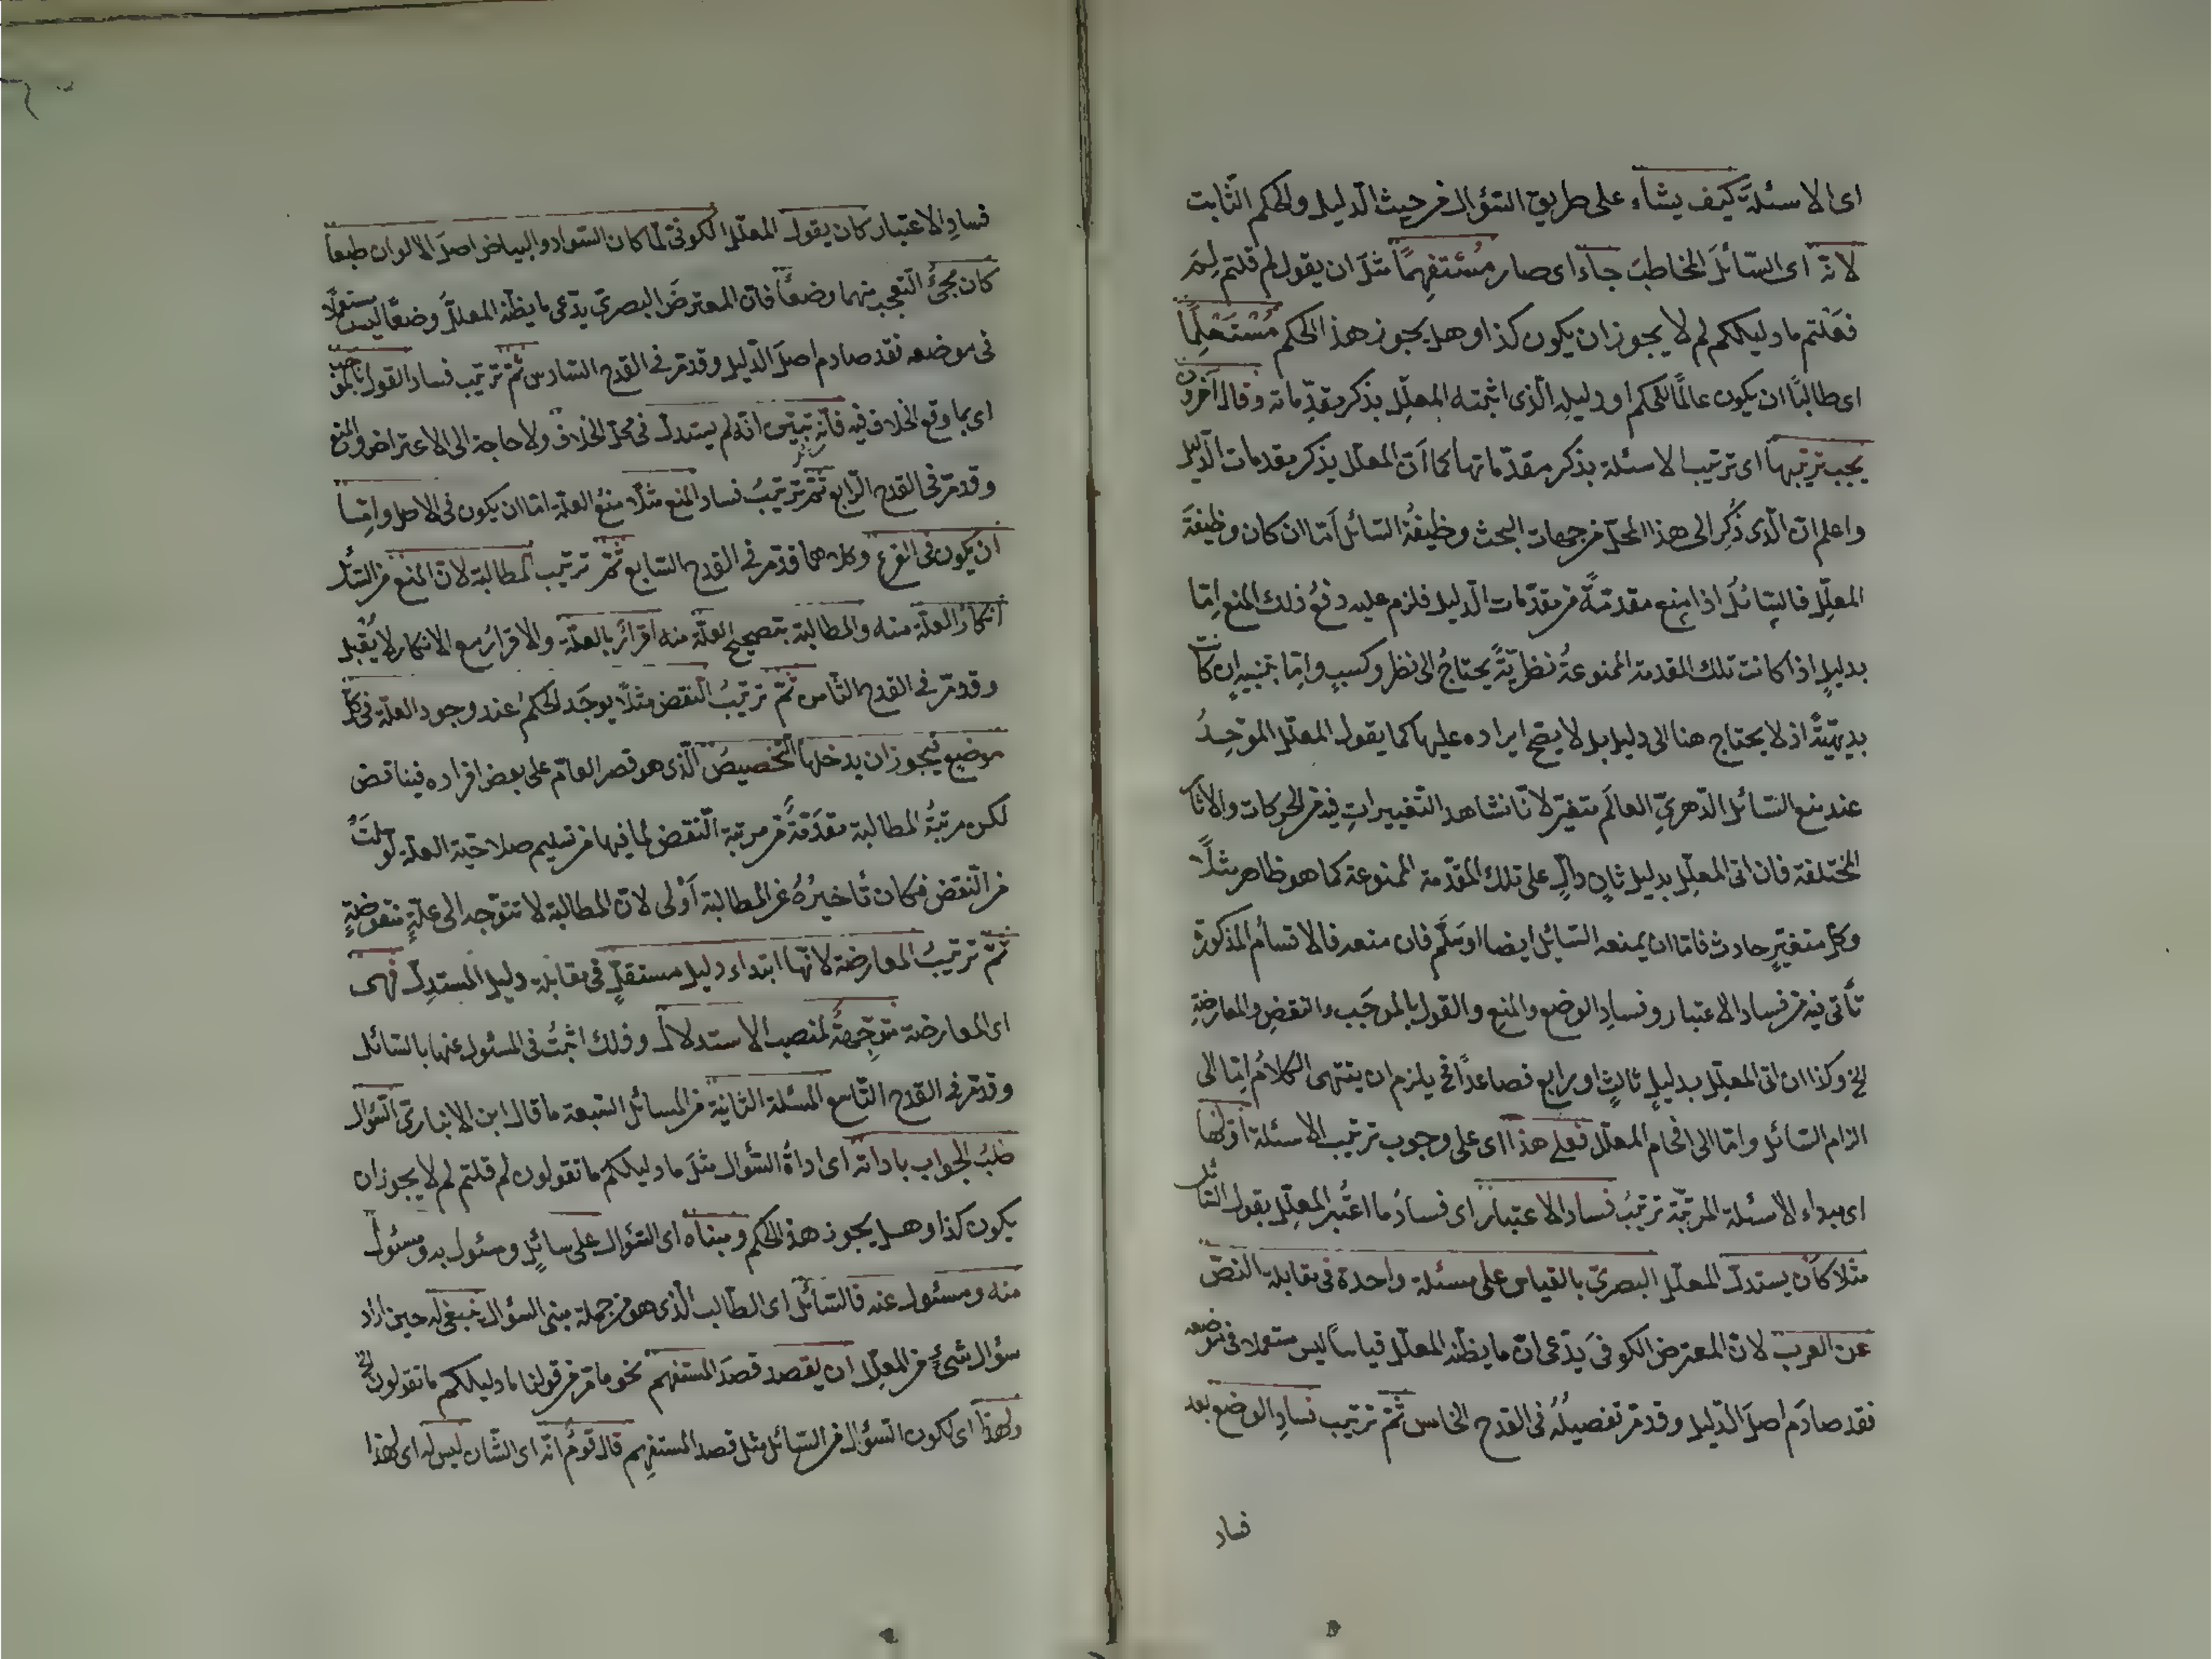 اى الاسئلة كيف يشاء على طريق السّؤال من حيث الدّليل والحكم الثّابت
لانّه اى السّائلَ المخاطبَ جاء اى صار مُسْتفهِمًا مثلَ ان يقول لم قلتم لِمَ
فعَلتم ما دليلكم لم لا يجوز ان يكون كذا وهل يجوز هذا الحكم مُسْتَعْلِمًا
اى طالبًا ان يكون عالمًا بحكم او دليلِه الّذى اثبته المعلّل بذكر مقدّماته وقال آخرون
يجب ترتيبها اى ترتيب الاسئلة بذكر مقدّماتها كما انّ المعلّل يذكر مقدمات الدّليل
واعلم انّ الّذى ذُكِر الى هذا المحلّ من جهات البحث وظيفةُ السّائل اَمّا ان كان وظيفةَ
المعلّل فالسّائلُ اذا منع مقدّمةً من مقدّمات الدّليل فلزم عليه دفعُ ذلك المنع اِمّا
بدليلٍ اذا كانت تلك المقدمة الممنوعةُ نظريّةً يحتاجُ الى نظر وكسبٍ واِمّا بتنبيهٍ ان كانت
بديهيّةً اذ لا يحتاج هنا الى دليل بل لا يصحّ ايراده عليها كما يقول المعلّل الموَحِّدُ
عند منع السّائل الدّهريّ العالَم متغيّر لانّا نشاهد التّغييراتِ فيه من الحركات والآثار
المختلفة فان اتى المعلِّل بدليل ثانٍ دالٍّ على تلك المقدّمة الممنوعة كما هو ظاهر مثلًا
وكلّ متغيّرٍ حادث فامّا ان يمنعه السّائل ايضا او سَلّم فان منعه فالاقسام المذكورة
تأتى فيه من فساد الاعتبار وفسادِ الوضع والمنعِ والقول بالموجَب والنقضِ والمعارضةِ
الخ وكذا ان اتى المعلّل بدليلٍ ثالثٍ او رابع فصاعدًا فح يلزم ان ينتهى الكلامُ اِمّا الى
الزام السّائل وامّا الى افحام المعلّل فعلى هذا اى على وجوب ترتيب الاسئلة اوّلُها
اى مبداء الاسئلة المرتّبة ترتيبُ فساد الاعتبار اى فسادُ ما اعتُبر المعلّل بقول السّائل
مثلا كاَن يستدلّ المعلّل البصرىّ بالقياس على مسئلة واحدة فى مقابلة النصّ
عن العرب لانّ المعترض الكوفىَّ يدّعى انّ ما يظنّه المعلّل قياسًا ليس مستعملا فى موضعه
فقد صادَم اصلَ الدّليل وقد مرّ تفصيلُهُ فى القدح الخامس ثمّ ترتيب فسادِ الوضع بعد
فساد
فسادِ الاعتبار كان يقول المعلّل الكوفىّ لمّا كان السّواد والبياض اصلَ الالوان طبعًا
كان مجئُ التّعجب منهما وضعًا فانّ المعترضَ البصرىّ يدّعى ما يظنّه المعلّلُ وضعًا ليس مستعملًا
فى موضعه فقد صادم اصلَ الدّليل وقد مرّ فى القدح السّادس ثمّ ترتيب فساد القول بالموجَب
اى بما وقع الخلاف فيه فانّه تبيّن انّه لم يستدلّ فى محلّ الخلاف ولا حاجة الى الاعتراض والمنع
وقد مرّ فى القدح الرّابع ثمّ ترتيبُ فساد المنع مثلًا منعُ العلّة امّا ان يكون فى الاصل واِمّا
ان يكون فى الفرع وكلاهما قد مرّ فى القدح السّابع ثمّ ترتيب المطالبة لانّ المنع من السّائل
انكارُ العلّة منه والمطالبة بتصحيح العلّة منه اقرارٌ بالعلّة والاقرارُ مع الانكار لا يُقْبل
وقد مرّ فى القدح الثّامن ثمّ ترتيبُ النّقض مثلًا يوجَد الحكمُ عند وجود العلّة فى كلّ
موضعٍ فيجوز ان يدخلها التّخصيصُ الّذى هو قصر العامّ على بعض افراده فيناقض
لكن مرتبةُ المطالبة مقدّمةٌ من مرتبة النّقض لما فيها من تسليم صلاحيّة العلّة لو سلمَتْ
من النّقض فكان تأخيرُهُ عن المطالبة أَوْلى لانّ المطالبة لا تتوجّه الى علّةٍ منقوضةٍ
ثمّ ترتيبُ المعارضة لانّها ابتداء دليلٍ مستقلٍّ فى مقابلة دليل المستدِلّ فهى
اى المعارضة متوجّهةٌ لمنصب الاستدلال وذلك اثبتُ فى المسئول عنها بالسّائل
وقد مرّ فى القدح التّاسع المسئلة الثّانية من المسائل السّبعة ما قال ابن الانبارىّ السّؤال
طلبُ الجواب باداته اى اداةِ السّؤال مثلَ ما دليلكم ما تقولون لم قلتم لم لا يجوز ان
يكون كذا وهل يجوز هذا الحكم ومبناه اى السّؤال على سائلٍ ومسئول به ومسئول
منه ومسئول عنه فالسّائل اى الطّالب الّذى هو من جملة مبنى السؤال ينبغى له حين اراد
سؤال شئٍ من المعلّل ان يقصد قصدَ المستفهم نحو ما مرّ من قولنا ما دليلكم ما تقولون الخ
ولهذا اى لكون السّؤال من السّائل مثل قصد المستفهِم قال قومٌ انّه اى الشّان ليس له اى لهذا